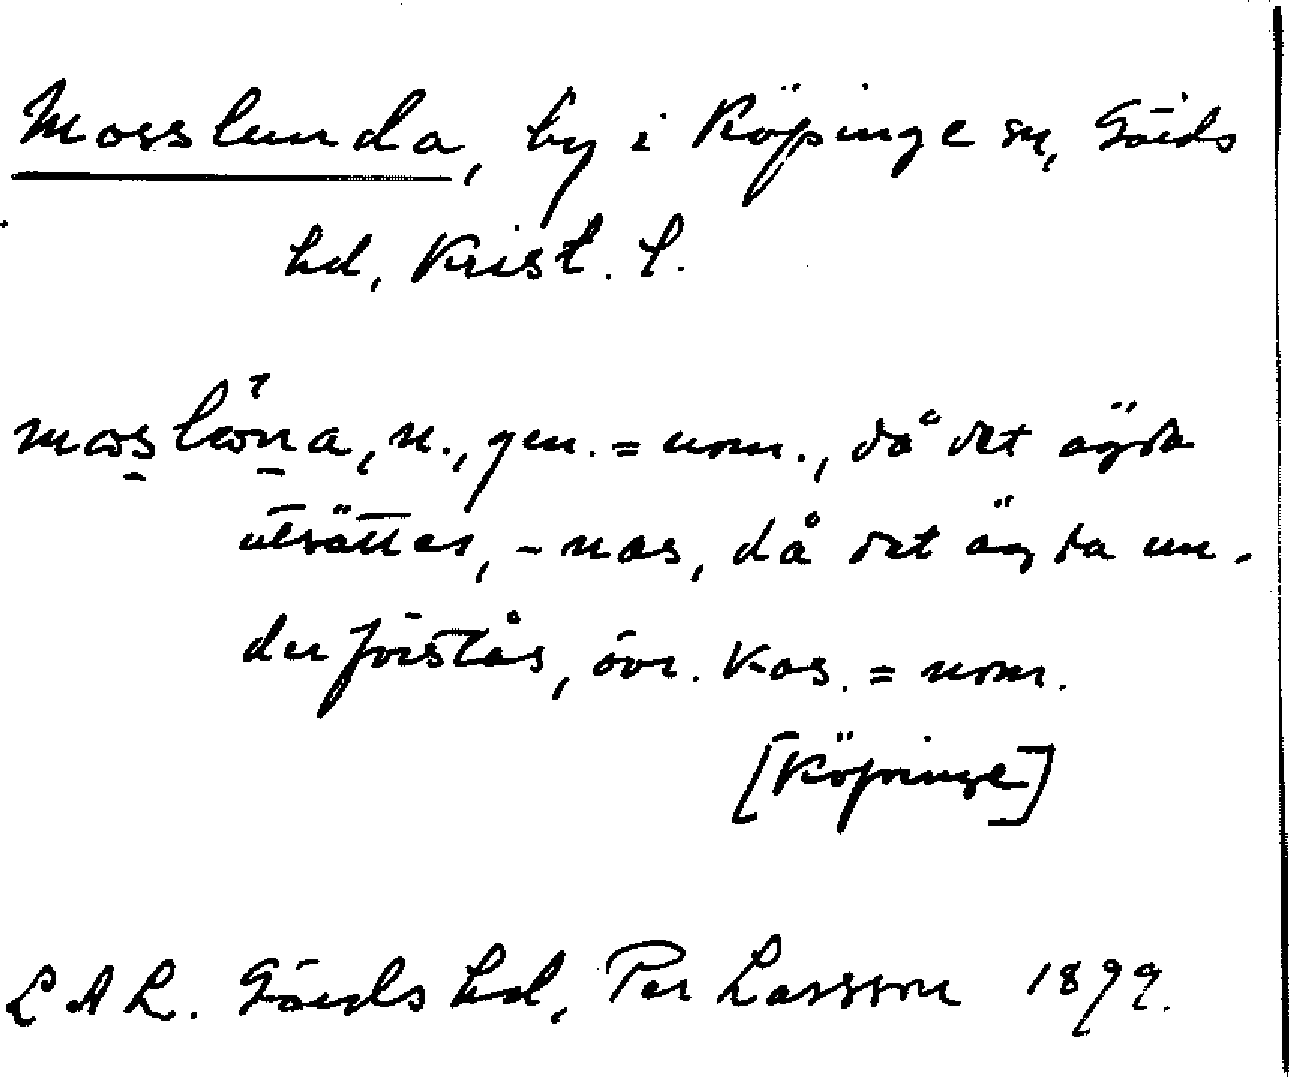 Mosslunda, by i Köpinge sn, Gärds
hd, Krist. l.
moslöna, n., gen. = nom., då det ägda
utsättes, -nas, då det ägda un-
der förstås, övr. kas. = nom.
[Köpinge]
LAL. Gärds hd, Per Larsson 1899.